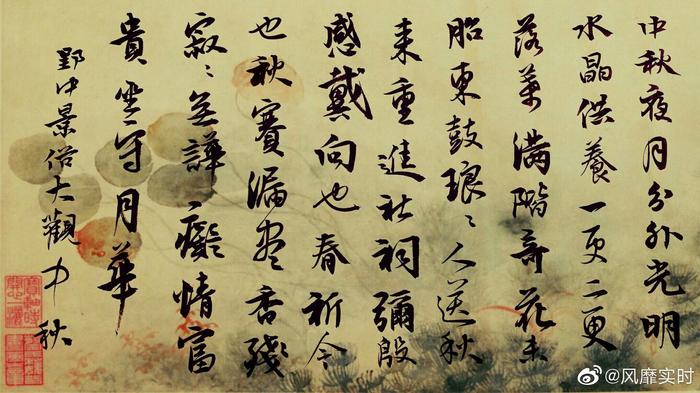 中秋夜月分外光明
水晶供養一更二更
落葉滿階奇花未
胎東鼓琅〻人送秋
来重進社祠彌殷
感戴向也春祈今
也秋賽漏盡香殘
寂〻无譁〻癡情富
貴坐守月華
野中景俗大觀中秋
@风靡实时